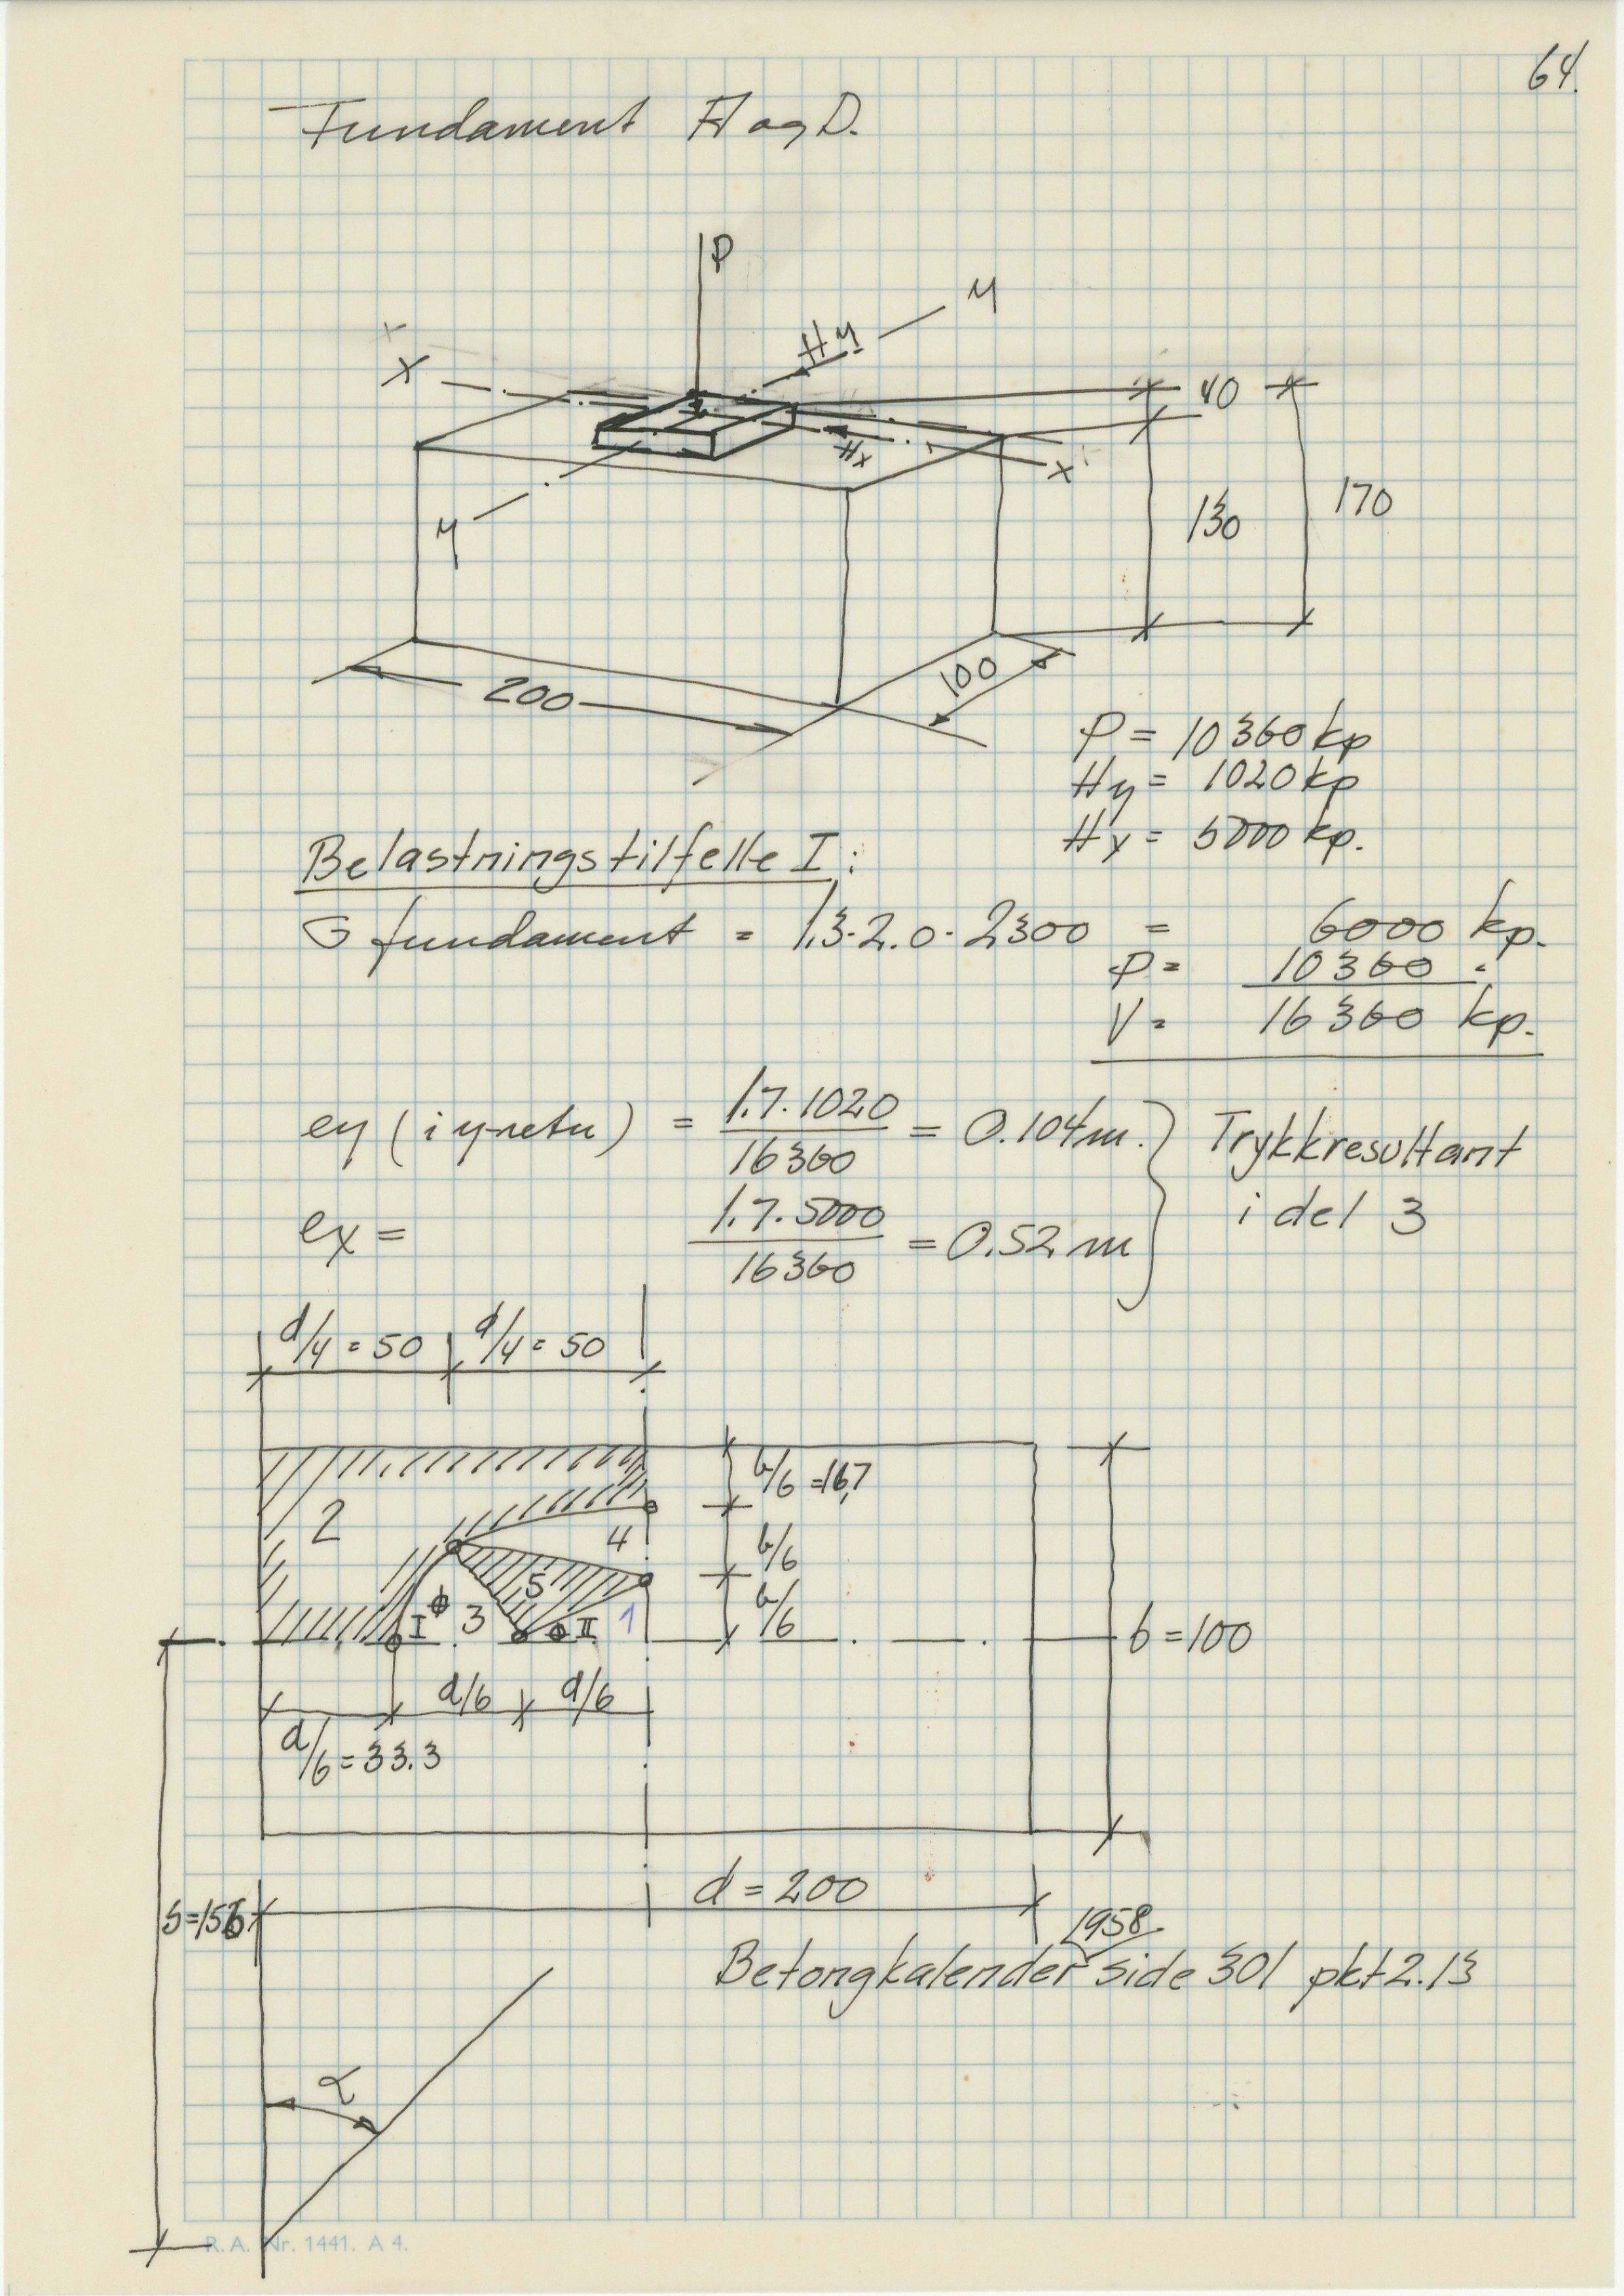 64.
Fundament A og D.
P
y
Hy
x
40
Hx
x
y
130
170
200
100
P = 10360 kp
Hy = 1020 kp
Hx = 5000 kp.
Belastningstilfelle I:
G fundament = 1.3·2.0·2300 = 6000 kp.
P = 10360 "
V = 16360 kp.
ey (i y-retn) = 1.7·1020 / 16360 = 0.104 m.
Trykkresultant
i del 3
ex = 1.7·5000 / 16360 = 0.52 m
d/4 = 50 d/4 = 50
b/6 = 16,7
2
4
b/6
5
I 3 II 1
b/6
b = 100
d/6 d/6
d/6 = 33.3
d = 200
1958
Betongkalender side 301 pkt 2.13
α
R.A. Nr. 1441. A 4.